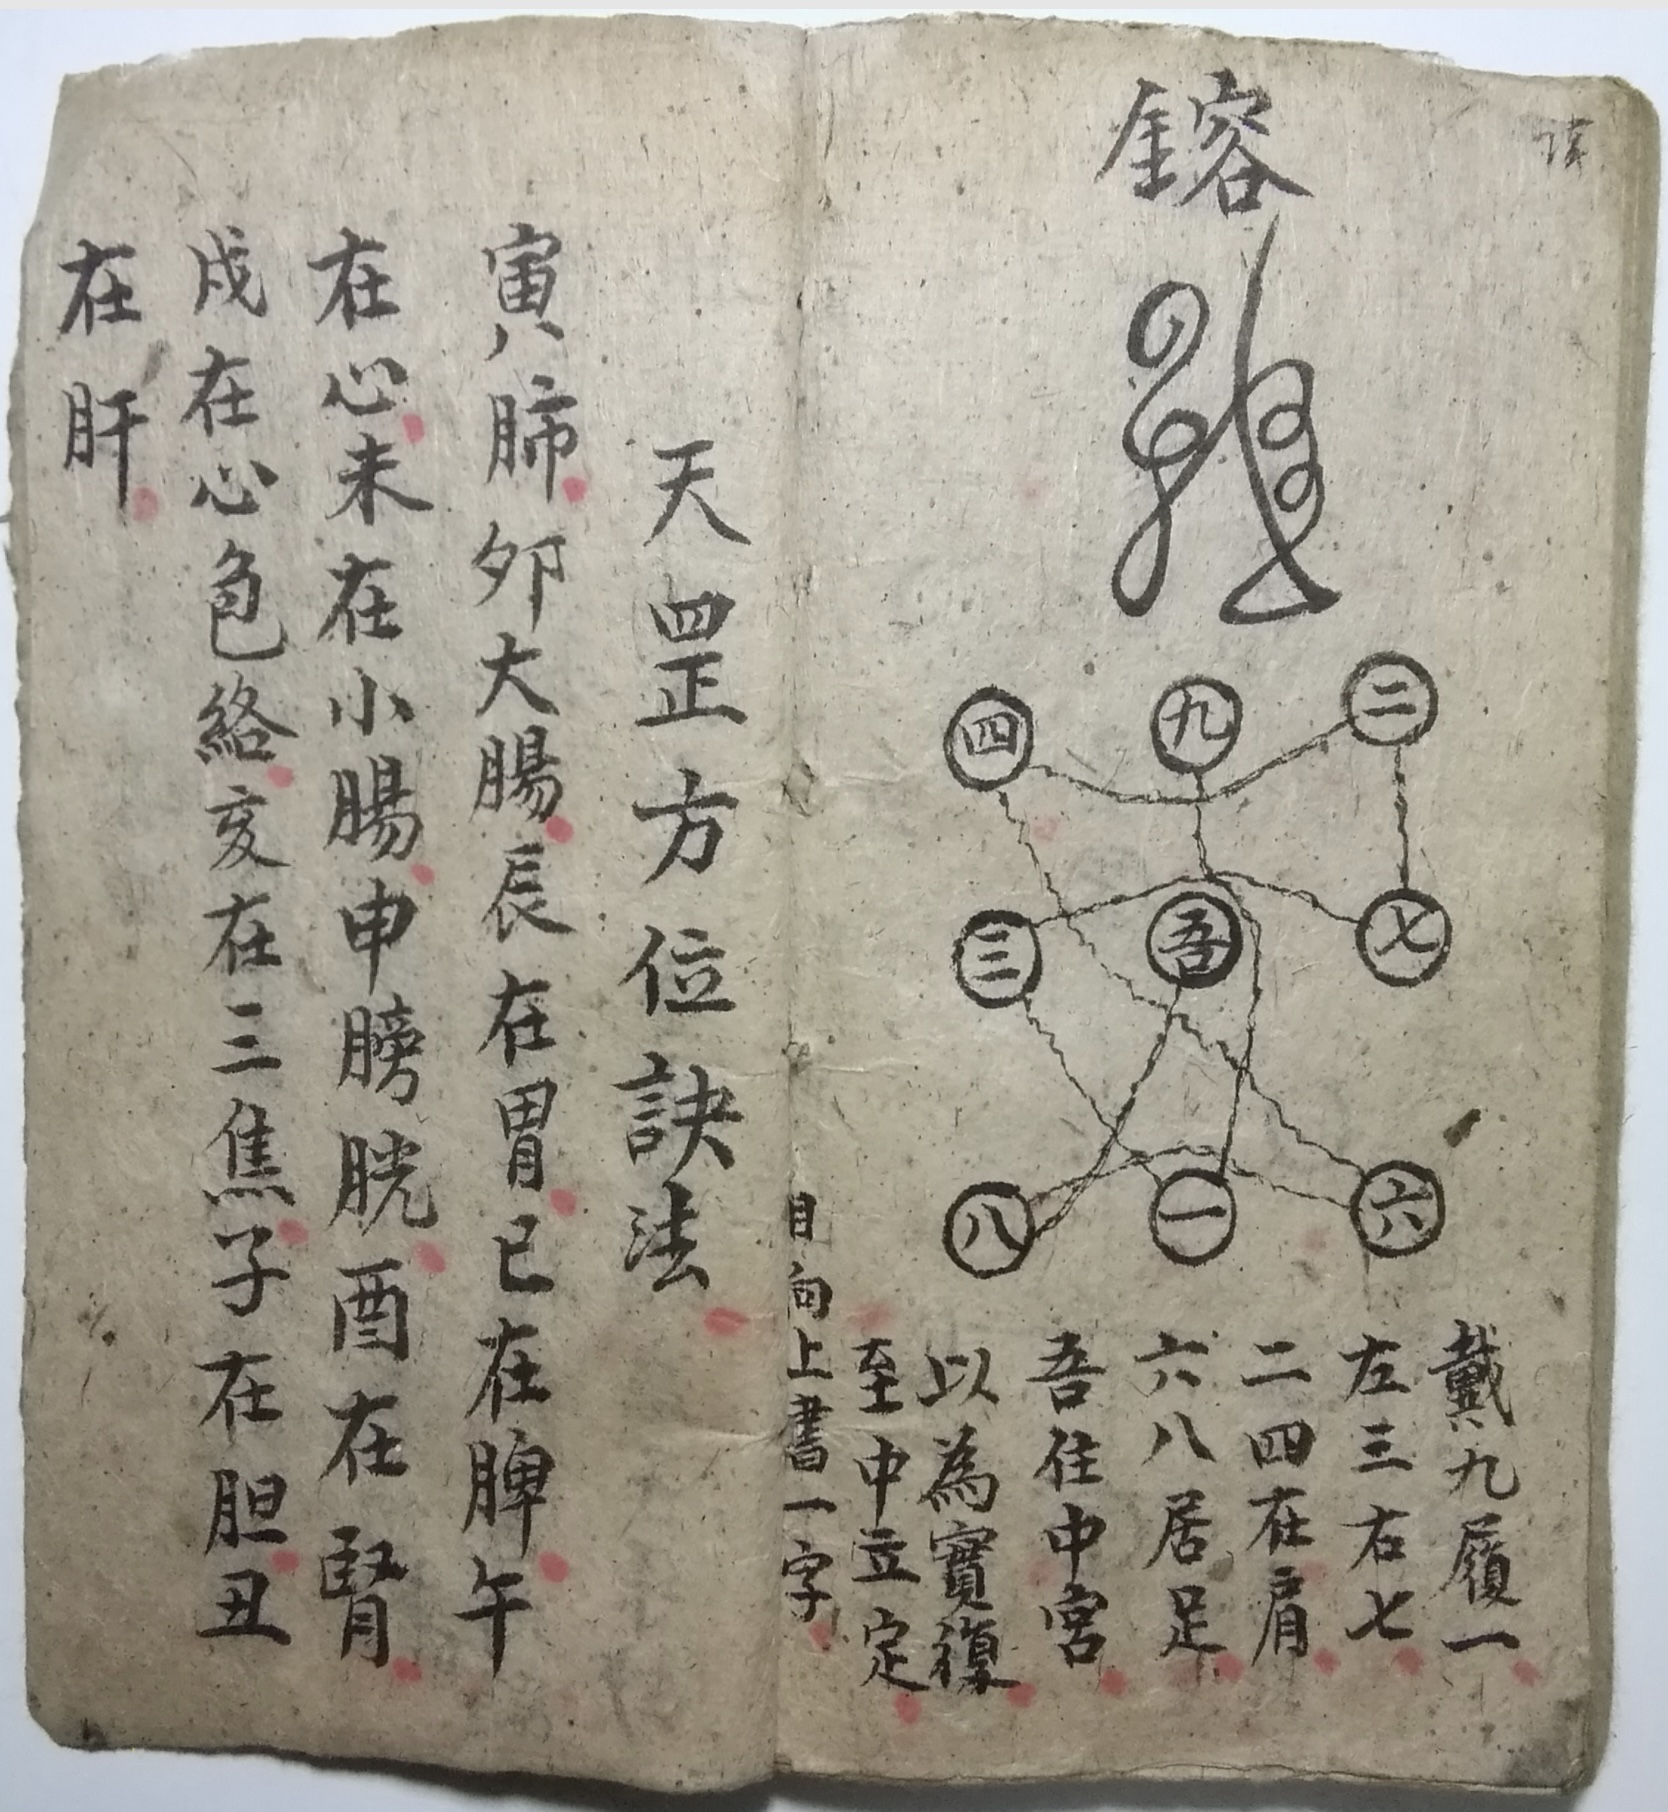 鎔
四 九 二
三 吾 七
八 一 六
戴九履一
左三右七
二四在肩
六八居足
吾住中宮
以為實復
至中立定
目向上書一字
天罡方位訣法
寅肺夘大腸辰在胃已在脾午
在心未在小腸申膀胱酉在腎
戌在心色絡亥在三焦子在胆丑
在肝